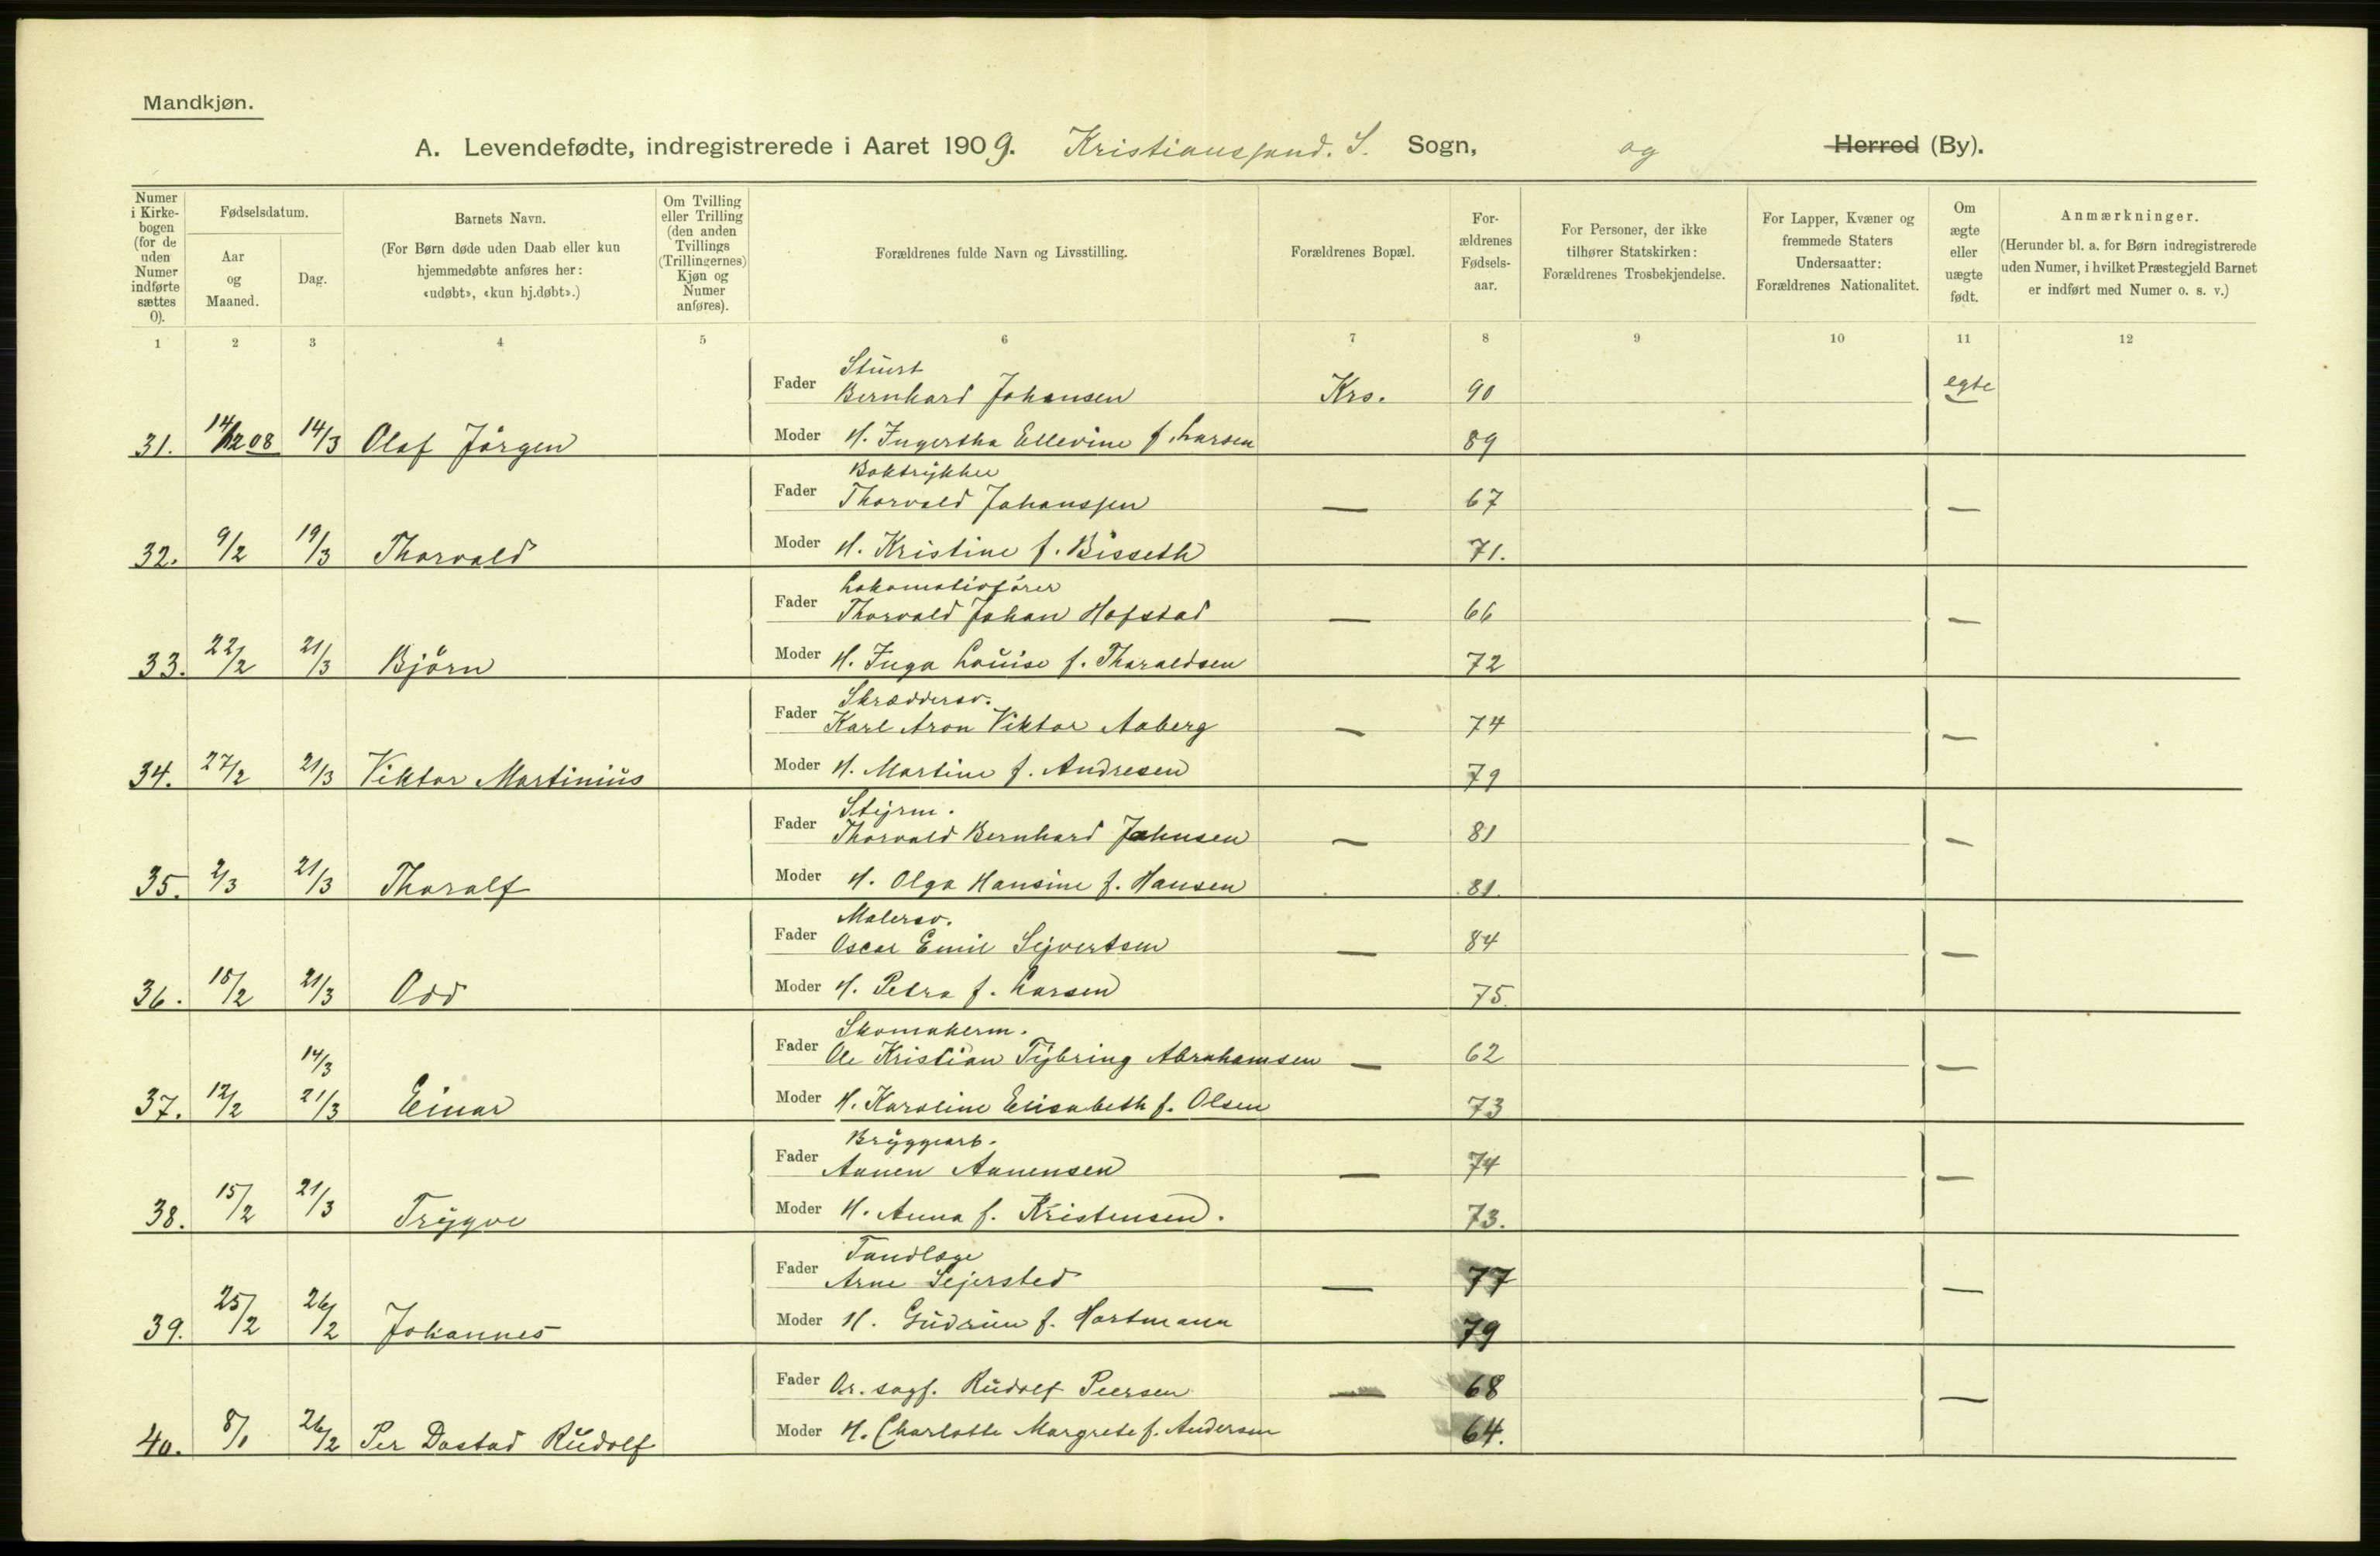 Mandkjøn.
A. Levendefødte, indregistrerede i Aaret 1909. Kristianssand. S. Sogn, og Herred (By).
Numer i Kirke- bogen (for de uden Numer indførte sættes 0).
Fødselsdatum.
Aar og Maaned.
Dag.
Barnets Navn.
(For Børn døde uden Daab eller kun
hjemmedøbte anføres her:
«udøbt», «kun hj.døbt».)
Om Tvilling eller Trilling (den anden Tvillings (Trillingernes) Kjøn og Numer anføres).
Forældrenes fulde Navn og Livsstilling.
Forældrenes Bopæl.
For- ældrenes Fødsels- aar.
For Personer, der ikke
tilhører Statskirken:
Forældrenes Trosbekjendelse.
For Lapper, Kvæner og
fremmede Staters
Undersaatter:
Forældrenes Nationalitet.
Om ægte eller uægte født.
Anmærkninger.
(Herunder bl. a. for Børn indregistrerede
uden Numer, i hvilket Præstegjeld Barnet
er indført med Numer o. s. v.)
1 2 3 4 5 6 7 8 9 10 11 12
Stuert
Fader Bernhard Johansen Krs. 90 egte
31. 14/12 08 14/3 Olaf Jörgen Moder H. Ingertha Ellevine f. Larsen 89
Boktrykker
Fader Thorvald Johanssen — 67 —
32. 9/2 19/3 Thorvald Moder H. Kristine f. Bisseth 71.
Lokomotivförer
Fader Thorvald Johan Hofstad — 66 —
33. 22/2 21/3 Björn Moder H. Inga Louise f. Tharaldsen 72
Skræddersv.
Fader Karl Aron Viktor Aaberg — 74 —
34. 27/2 21/3 Viktor Martinius Moder H. Martine f. Andresen 79
Styrm.
Fader Thorvald Bernhard Johnsen — 81 —
35. 2/3 21/3 Tharalf Moder H. Olga Hansine f. Hansen 81.
Malersv.
Fader Oscar Emil Sejvertsen — 84 —
36. 18/2 21/3 Odd Moder H. Petra f. Larsen 75.
Skomakerm.
Fader Ole Kristian Tybring Abrahamsen — 62 —
14/3
37. 12/2 21/3 Einar Moder H. Karoline Elisabeth f. Olsen 73
Bryggearb.
Fader Aanen Aanensen — 74 —
38. 15/2 21/3 Trygve Moder H. Anna f. Kristensen. 73.
Tandlæge
Fader Arne Sejersted — 77 —
39. 25/2 26/2 Johannes Moder H. Gudrun f. Hartmann 79
Fader Or. sagf. Rudolf Peersen — 68 —
40. 8/1 26/2 Per Dastad Rudolf Moder H. Charlotte Margrete f. Andersen 64.